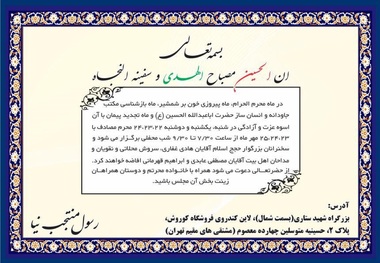 بسمه تعالی
ان الحسین مصباح الهدی و سفینه النجاه
در ماه محرم الحرام، ماه پیروزی خون بر شمشیر، ماه بازشناسی مکتب
جاودانه و انسان ساز حضرت اباعبدالله الحسین (ع) و ماه تجدید پیمان با آن
اسوه عزت و آزادگی در شنبه، یکشنبه و دوشنبه ۲۴،۲۳،۲۲ محرم مصادف با
۲۵،۲۴،۲۳ مهر ماه از ساعت ۷/۳۰ تا ۹/۳۰ شب محفلی برگزار می شود و
سخنرانان بزرگوار حجج اسلام آقایان هادی غفاری، سروش محلاتی و نقویان و
مداحان اهل بیت آقایان مصطفی عابدی و ابراهیم قهرمانی افاضه خواهند کرد.
از حضرتعالی دعوت می شود همراه با خانواده محترم و دوستان همراهان
زینت بخش آن مجلس باشید.
رسول منتجب نیا
آدرس:
بزرگراه شهید ستاری(بسمت شمال)، لاین کندروی فروشگاه کوروش،
پلاک ۲، حسینیه متوسلین چهارده معصوم (مشتقی های مقیم تهران)